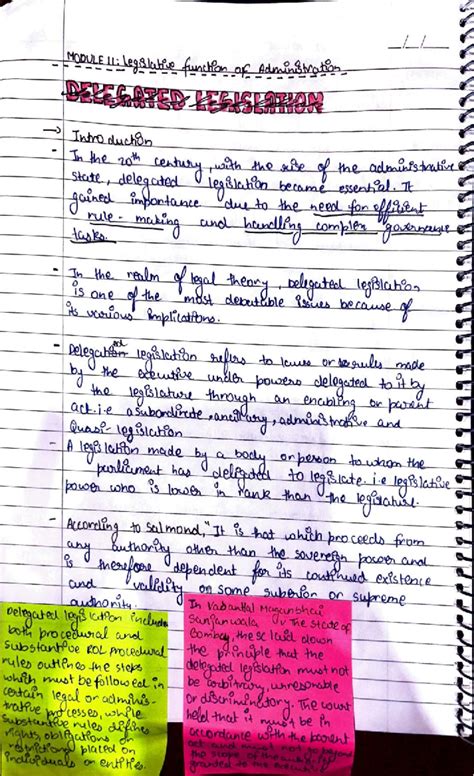 MODULE II: Legislative function of Administration
DELEGATED LEGISLATION
→ Introduction
- In the 20th century, with the rise of the administrative
state, delegated legislation became essential. It
gained importance due to the need for efficient
rule-making and handling complex governance
tasks.
- In the realm of legal theory, delegated legislation
is one of the most debatable issues because of
its various implications.
- Delegated legislation refers to laws or rules made
by the executive under powers delegated to it by
the legislature through an enabling or parent
act. i.e a subordinate, ancillary, administrative and
Quasi-legislation
- A legislation made by a body or person to whom the
parliament has delegated to legislate. i.e legislative
power who is lower in rank than the legislature.
- According to Salmond, "It is that which proceeds from
any authority other than the sovereign power and
is therefore dependent for its continued existence
and validity on some superior or supreme
authority.
Delegated legislation includes
both procedural and
substantive ROL procedural
rules outlines the steps
which must be followed in
certain legal or adminis-
trative processes, while
substantive rules defines
rights, obligations or
restrictions placed on
individuals or entities.
In Maganbhai
v The State of
Bombay, the SC laid down
the principle that the
delegated legislation must not
be arbitrary, unreasonable
or discriminatory. The court
held that it must be in
accordance with the parent
act and must not go beyond
the scope of the
granted to the